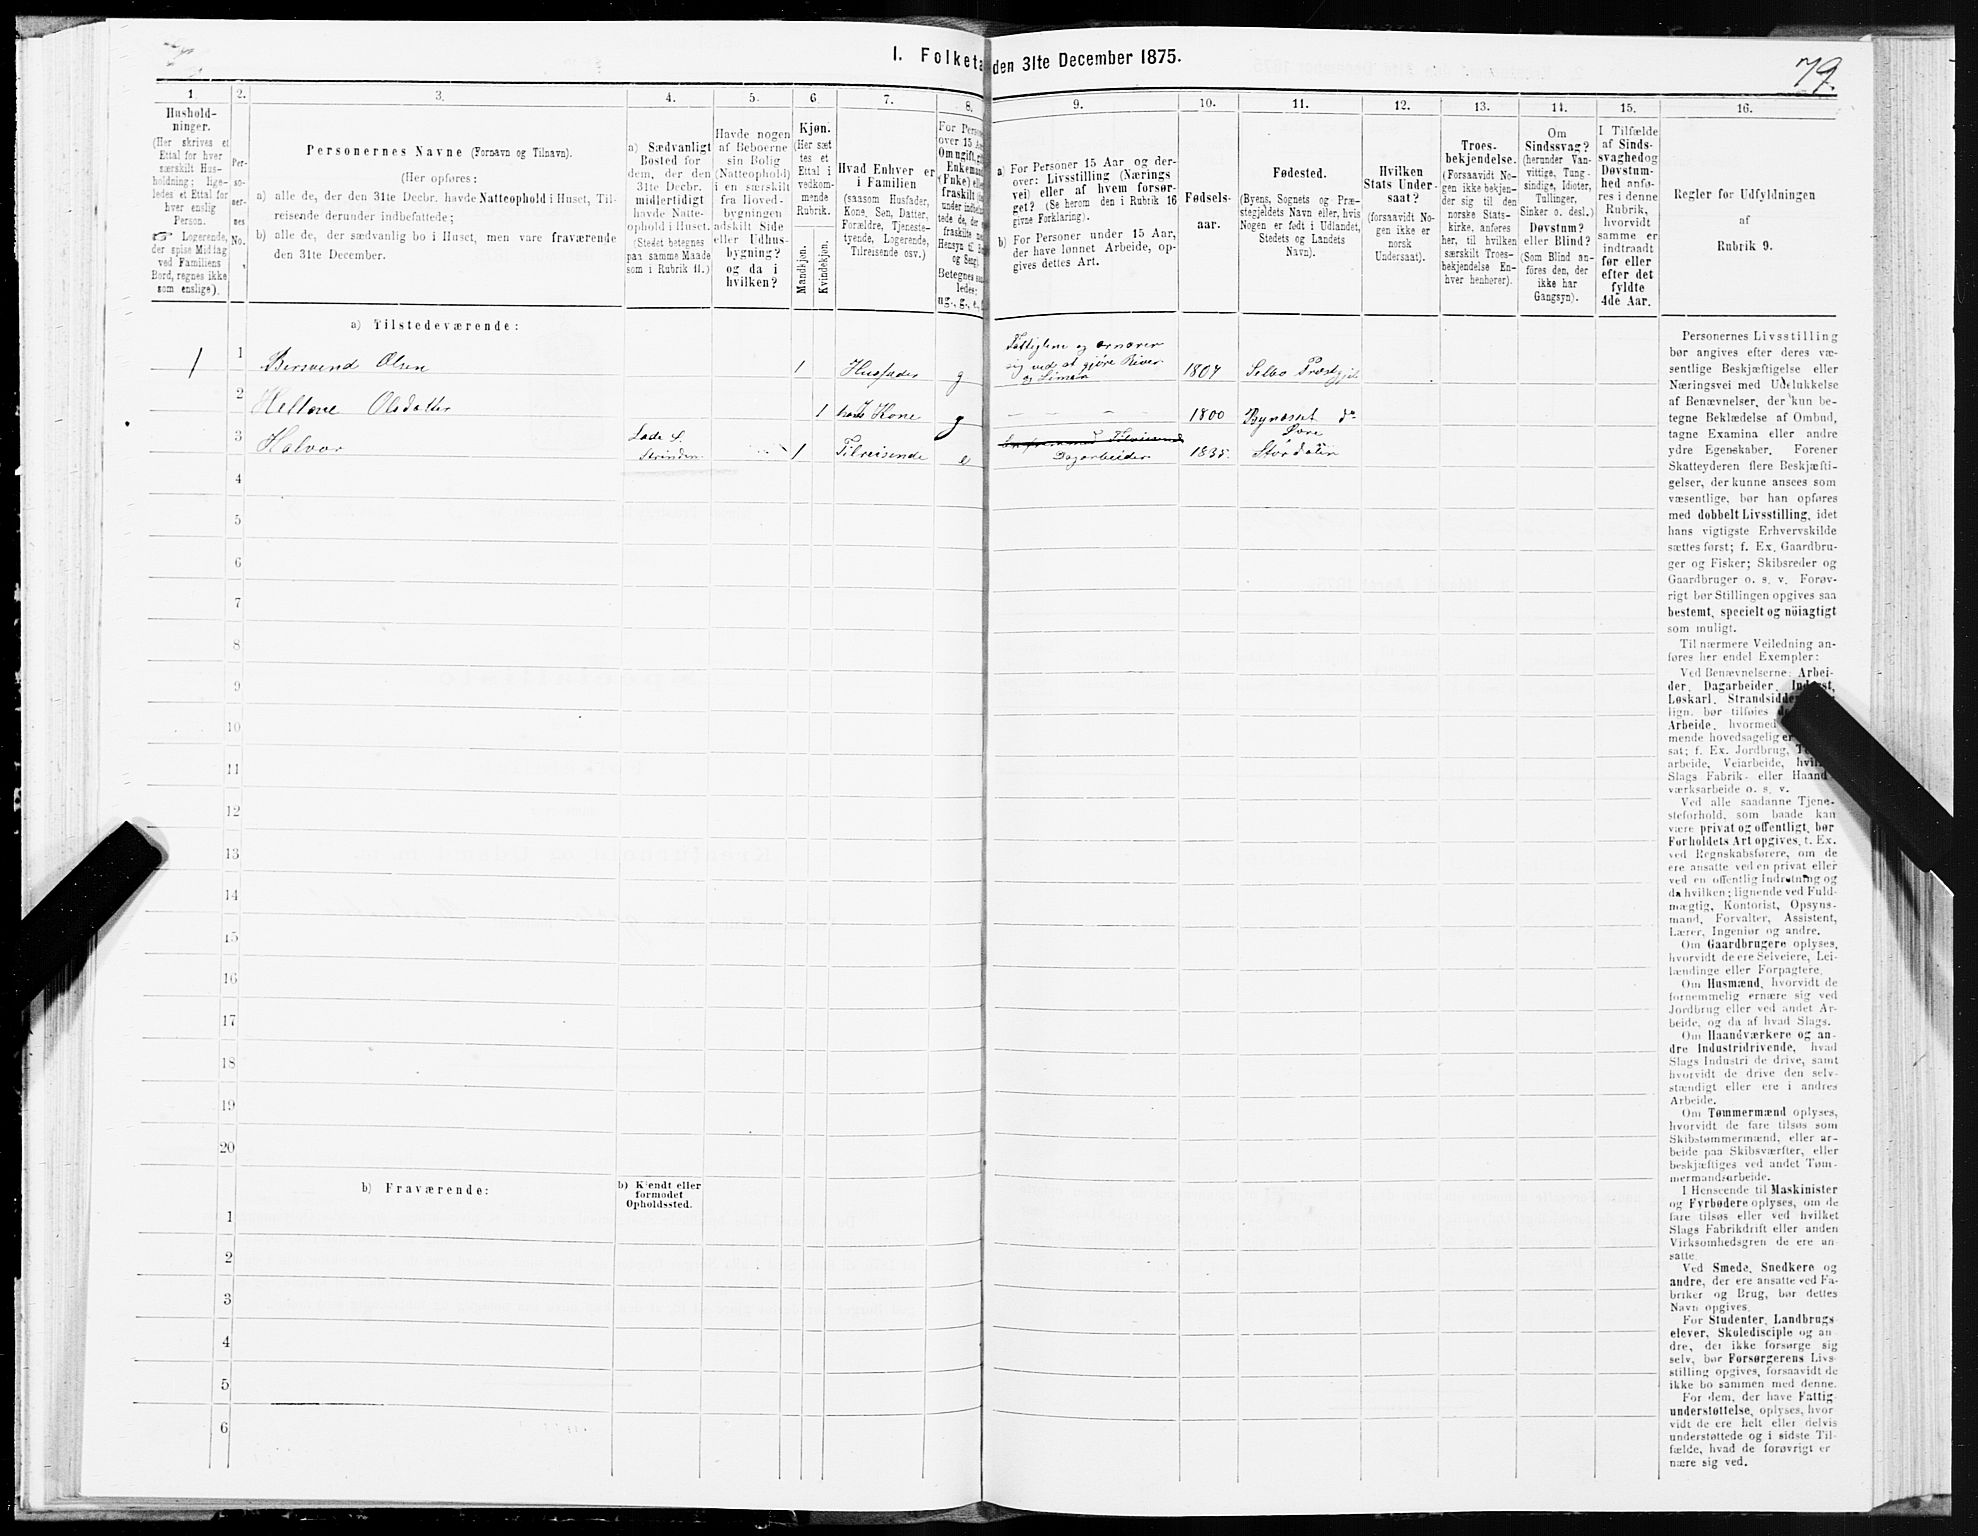 I. Folketæ
den 31te December 1875.
79.
1.
2.
3.
4.
5.
6.
7.
8.
9.
10.
11.
12.
13.
14.
15.
16.
Hushold-
ninger.
(Her skrives et
Ettal for hver
særskilt Hus-
holdning; lige-
ledes et Ettal for
hver enslig
Person.
☞ Logerende,
der spise Middag
ved Familiens
Bord, regnes ikke
som enslige).
Per-
so-
ner-
nes
No.
Personernes Navne (Fornavn og Tilnavn).
(Her opføres:
a) alle de, der den 31te Decbr. havde Natteophold i Huset, Til-
reisende derunder indbefattede;
b) alle de, der sædvanlig bo i Huset, men vare fraværende
den 31te December.
a) Sædvanligt
Bosted for
dem, der den
31te Decbr.
midlertidigt
havde Natte-
ophold i Huset.
(Stedet betegnes
paa samme Maade
som i Rubrik 11.)
Havde nogen
af Beboerne
sin Bolig
(Natteophold)
i en særskilt
fra Hoved-
bygningen
adskilt Side
eller Udhus-
bygning?
og da i
hvilken?
Kjøn.
(Her sæt
tes et
Ettal i
vedkom-
mende
Rubrik.
Mandkjøn.
Kvindekjøn.
Hvad Enhver er
i Familien
(saasom Husfader,
Kone, Søn, Datter,
Forældre, Tjeneste-
tyende, Logerende,
Tilreisende osv.)
For Perso
over 15 Aar
Om ugift, gift
Enkemand
(Enke) elle
fraskilt
under indbe
tede de, der
fraskilte
Hensyn til Bo
og Seng)
Betegnes saa
ledes:
ug., g., e.,
a) For Personer 15 Aar og der-
over: Livsstilling (Nærings
vei) eller af hvem forsør-
get? (Se herom den i Rubrik 16
givne Forklaring).
b) For Personer under 15 Aar,
der have lønnet Arbeide, op-
gives dettes Art.
Fødsels-
aar.
Fødested.
(Byens, Sognets og Præ-
stegjeldets Navn eller, hvis
Nogen er født i Udlandet,
Stedets og Landets
Navn).
Hvilken
Stats Under-
saat?
(forsaavidt No-
gen ikke er
norsk
Undersaat).
Troes-
bekjendelse.
(Forsaavidt No-
gen ikke bekjen-
der sig til den
norske Stats-
kirke, anføres
her, til hvilken
særskilt Troes-
bekjendelse En-
hver henhører).
Om
Sindssvag?
(herunder Van-
vittige, Tung-
sindige, Idioter,
Tullinger,
Sinker o. desl.)
Døvstum?
eller Blind?
(Som Blind an-
føres den, der
ikke har
Gangsyn).
I Tilfælde
af Sinds-
svaghed og
Døvstum-
hed anfø-
res i denne
Rubrik,
hvorvidt
samme er
indtraadt
før eller
efter det
fyldte
4de Aar.
Regler for Udfyldningen
af
Rubrik 9.
a) Tilstedeværende:
1 1 Bersvend Olsen 1 Husfader g
Fattiglem og ernærer
sig ved at gjøre River
og Limer 1807 Selbo Præstgjeld
2 Olsdatter 1 hans Kone g — — — 1800 Bynæsset do
3 Halvor Lade S. Strinden 1 Tilreisende e
Dagarbeider 1835. Øvre
Stordalen
4
5
6
7
8
9
10
11
12
13
14
15
16
17
18
19
20
b) Fraværende:
b) Kjendt eller
formodet
Opholdssted.
1
2
3
4
5
6
Personernes Livsstilling
bør angives efter deres væ-
sentlige Beskjæftigelse eller
Næringsvei med Udelukkelse
af Benævnelser, der kun be-
tegne Beklædelse af Ombud,
tagne Examina eller andre
ydre Egenskaber. Forener
Skatteyderen flere Beskjæfti-
gelser, der kunne ansees som
væsentlige, bør han opføres
med dobbelt Livsstilling, idet
hans vigtigste Erhvervskilde
sættes først; f. Ex. Gaardbru-
ger og Fisker; Skibsreder og
Gaardbruger o. s. v. Forøv-
rigt bør Stillingen opgives saa
bestemt, specielt og nöiagtigt
som muligt.
Til nærmere Veiledning an-
føres her endel Exempler:
Ved Benævnelserne: Arbei-
der, Dagarbeider, Inderst,
Løskarl, Strandsidder
lign. bør tilføies
Arbeide, hvormed
mende hovedsagelig er
sat; f. Ex. Jordbrug,
arbeide, Veiarbeide, hvil
Slags Fabrik- eller Haand
værksarbeide o. s. v.
Ved alle saadanne Tjene-
steforhold, som baade kan
være privat og offentligt, bør
Forholdets Art opgives, f. Ex.
ved Regnskabsførere, om de
ere ansatte ved en privat eller
ved en offentlig Indretning og
da hvilken; lignende ved Fuld-
mægtig, Kontorist, Opsyns-
mand, Forvalter, Assistent,
Lærer, Ingeniør og andre.
Om Gaardbrugere oplyses,
hvorvidt de ere Selveiere, Lei-
lændinge eller Forpagtere.
Om Husmænd, hvorvidt de
fornemmelig ernære sig ved
Jordbrug eller ved andet Ar-
beide, og da af hvad Slags.
Om Haandværkere og an-
dre Industridrivende, hvad
Slags Industri de drive, samt
hvorvidt de drive den selv-
stændigt eller ere i andres
Arbeide.
Om Tømmermænd oplyses,
hvorvidt de fare tilsøs som
Skibstømmermænd, eller ar-
beide paa Skibsværfter, eller
beskjæftiges ved andet Tøm-
mermandsarbeide.
I Henseende til Maskinister
og Fyrbødere oplyses, om de
fare tilsøs eller ved hvilket
Slags Fabrikdrift eller anden
Virksomhedsgren de ere an-
satte.
Ved Smede, Snedkere og
andre, der ere ansatte ved Fa-
briker og Brug, bør dettes
Navn opgives.
For Studenter, Landbrugs
elever, Skoledisciple og an-
dre, der ikke forsørge sig
selv, bør Forsørgerens Livs-
stilling opgives, forsaavidt de
ikke bo sammen med denne.
For dem, der have Fattig-
understøttelse, oplyses, hvor
vidt de ere helt eller delvis
understøttede og i sidste Til-
fælde, hvad de forøvrigt er
nære sig ved.